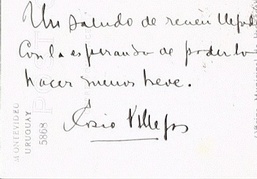 Un saludo de recién llegado
Con la esperanza de poderlo
hacer menos breve.
Cosío Villegas
MONTEVIDEO
URUGUAY
5868